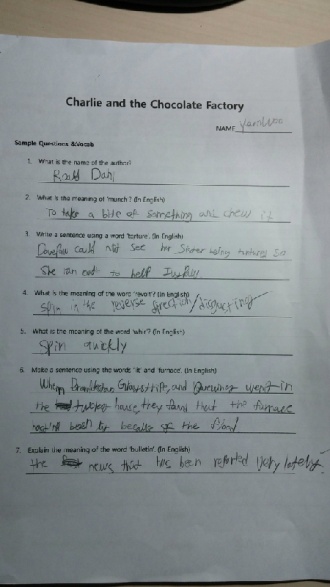 Charlie and the Chocolate Factory
NAME
Sample Questions &Vocab
1. What is the name of the author?
Roald Dahl
2. What is the meaning of 'munch'? (In English)
To take a bite of something and chew it
3. Write a sentence using a word 'torture'. (In English)
could not see her Sister using tortures So
She ran out to help
4. What is the meaning of the word 'revolt'? (In English)
Spin in the reverse direction/disgusting
5. What is the meaning of the word 'whir'? (In English)
Spin quickly
6. Make a sentence using the words 'lit' and 'furnace'. (In English)
When and went in
the house, they found that the furnace
been lit because of the
7. Explain the meaning of the word 'bulletin'. (In English)
the news that has been reported very lately.